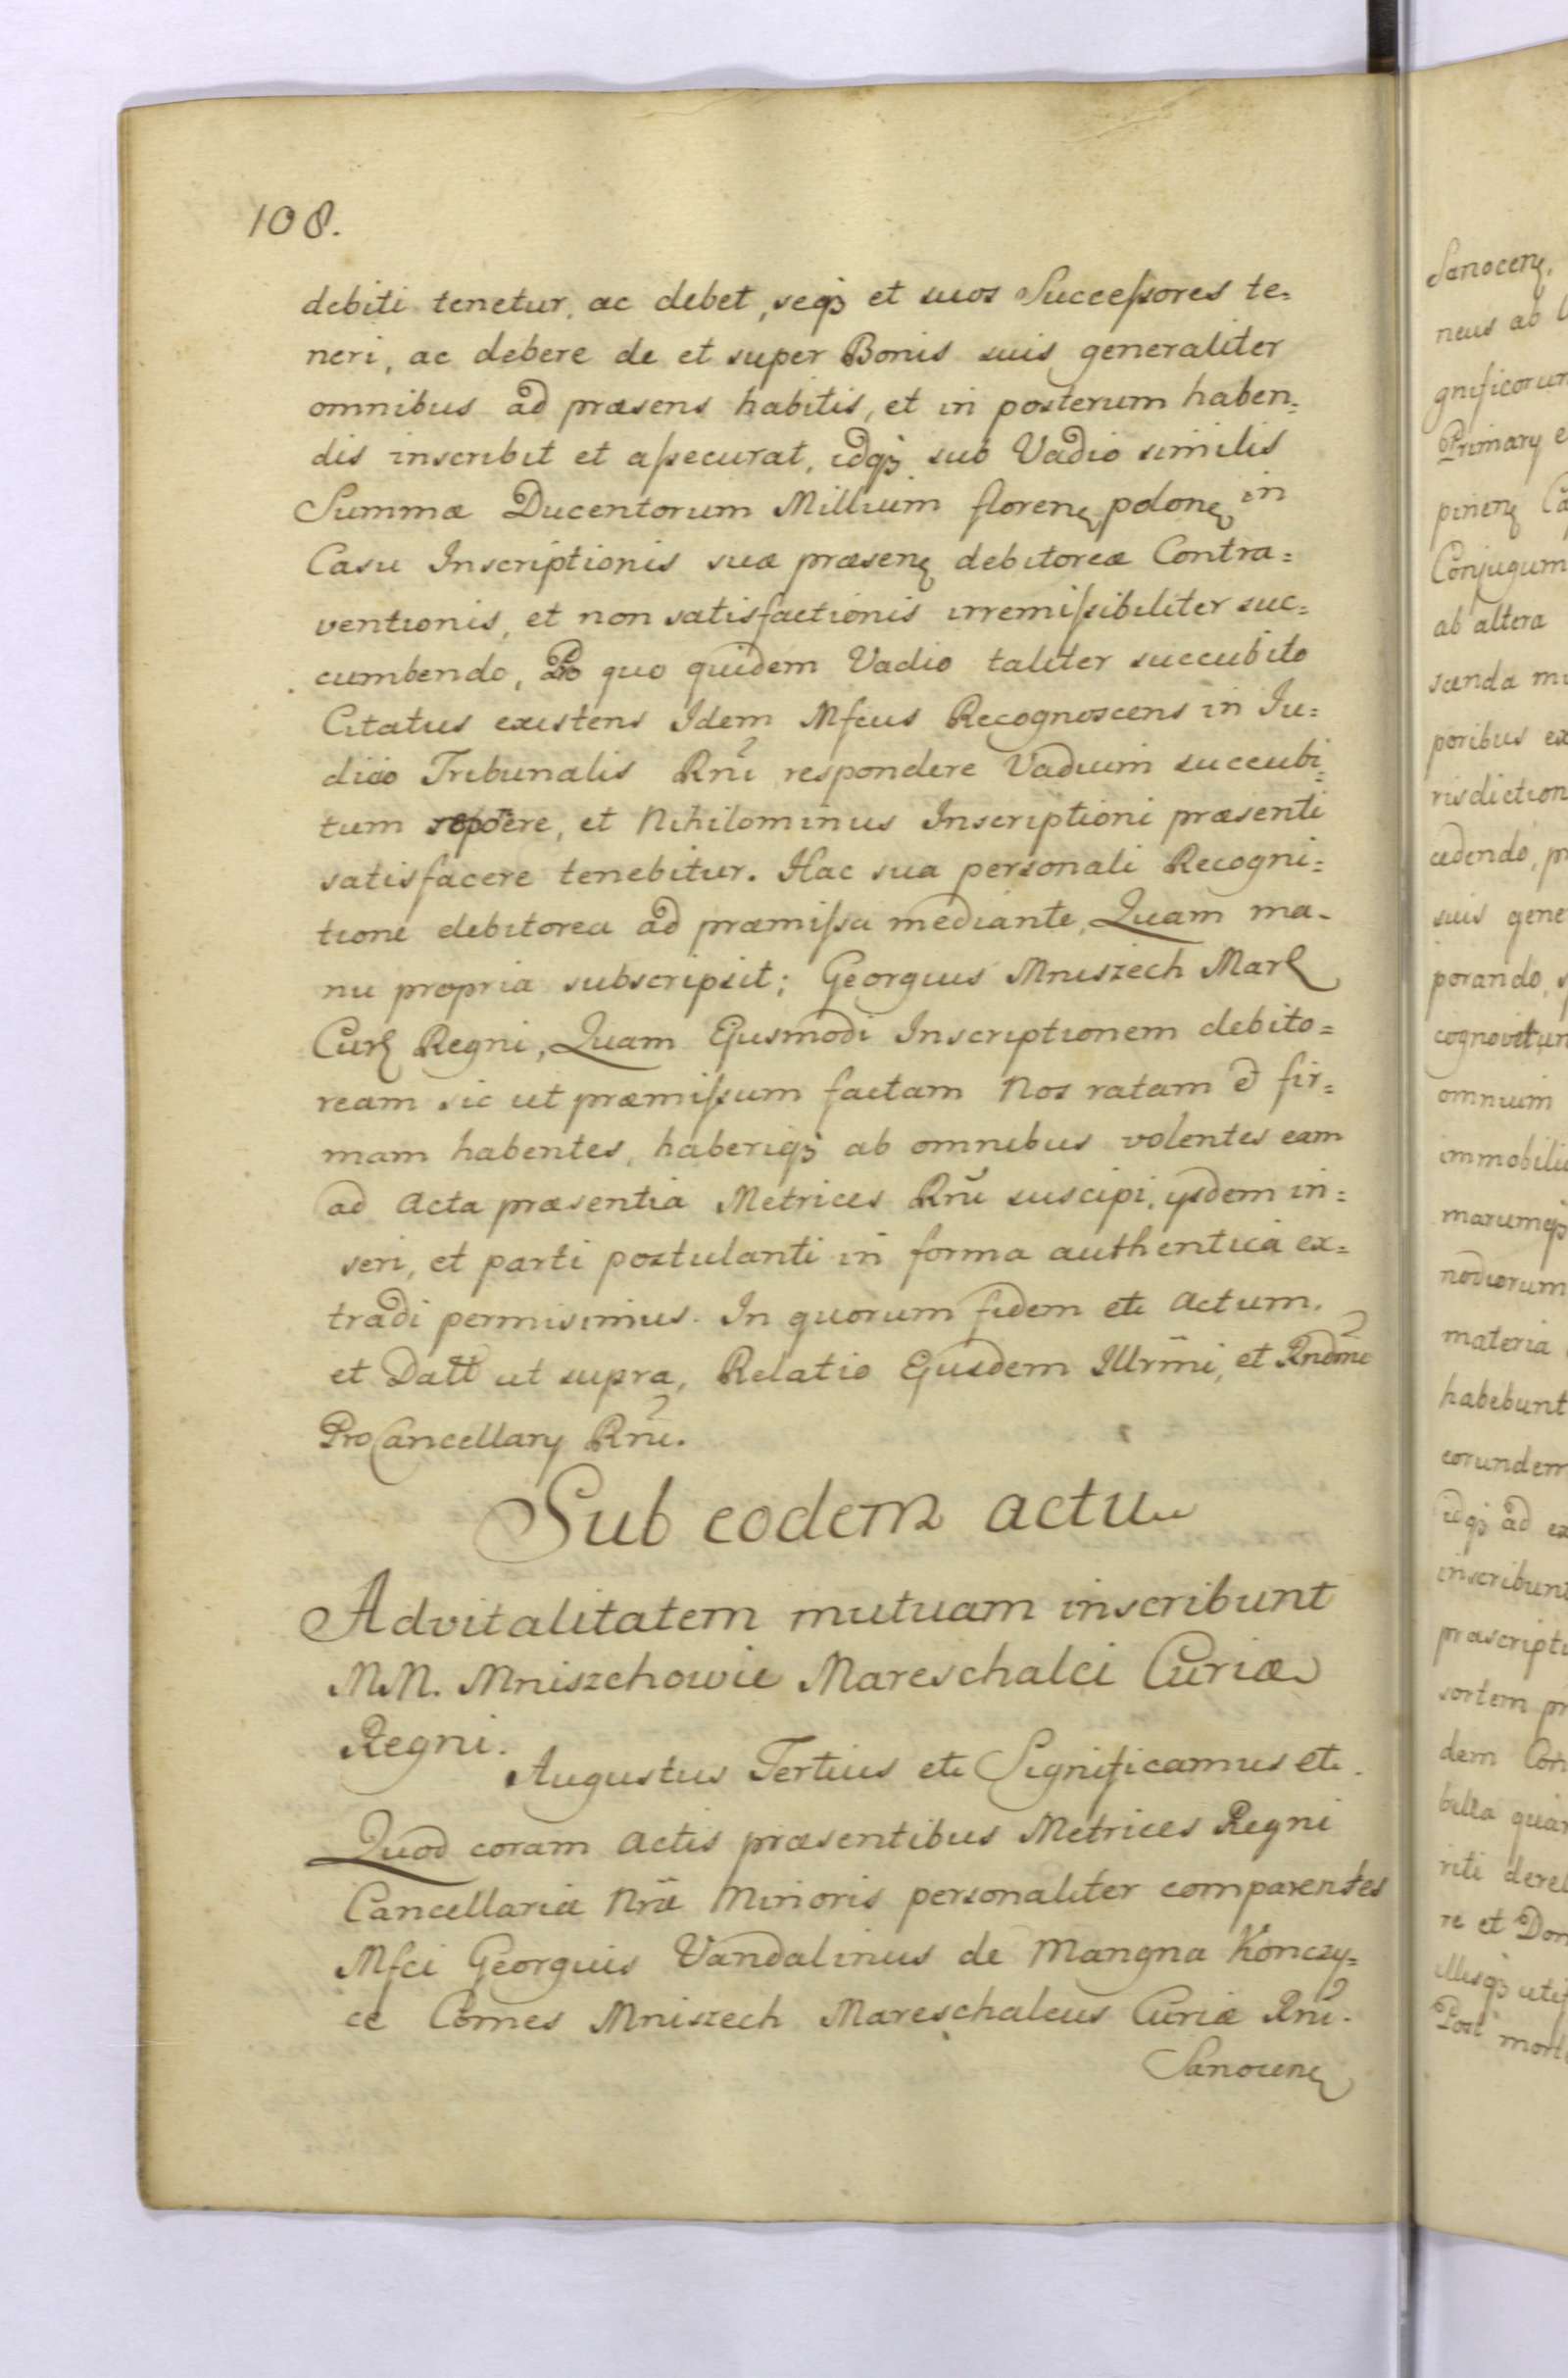 108.
debiti tenetur, ac debet, seqз et suos Successores te=
neri, ac debere de et super Bonis suis generaliter
omnibus ad præsens habitis, et in posterum haben=
dis inscribit et assecurat, idqз sub Vadio similis
Summæ Ducentorum Millium floren polon in
Casu Inscriptionis suæ præsen debitoreæ Contra=
ventionis, et non satisfactionis irremissibiliter suc=
cumbendo, Pro quo quidem Vadio taliter succubito
Citatus existens Idem Mfcus Recognoscens in Ju=
dicio Tribunalis Rñi respondere Vadium succubi=
tum repõere, et Nihilominus Inscriptioni præsenti
satisfacere tenebitur. Hac sua personali Recogni=
tione debitorea ad præmissa mediante, Quam ma-
nu propria subscripsit; Georgius Mniszech Mar
Cur Regni, Quam Ejusmodi Inscriptionem debito=
ream sic ut præmissum factam Nos ratam et fir=
mam habentes, haberiqз ab omnibus volentes eam
ad Acta præsentia Metrices Rñi suscipi, ijsdem in=
seri, et parti postulanti in forma authentica ex=
tradi permisimus. In quorum fidem etc Actum.
et Datt ut supra, Relatio Ejusdem Illrmi, et Rndmi
ProCancellarij Rñi.
Sub eodem actu
Advitalitatem mutuam inscribunt
M.M. Mniszchowie Mareschalci Curiæ
Regni.
Augustus Tertius etc Significamus etc.
Quod coram Actis præsentibus Metrices Regni
Cancellariæ Nræ Minoris personaliter comparentes
Mfci Georgius Vandalinus de Mangna Konczy=
ce Comes Mniszech Mareschalcus Curiæ Rñi.
Sanocen
Sanocen,
neus ab
gnificorum
Primarij e
pinen Ca
Conjugum
ab altera
sanda
poribus ex
risdiction
cedendo, p
suis gene
porando,
cognovit
omnium
immobili
marumqз
nodiorum
materia
habebunt
eorundem
idqз ad ex
inscribunt
præscript
sortem pr
dem Con
bella quar
riti derel
re et Dom
illisqз uti
Post mort